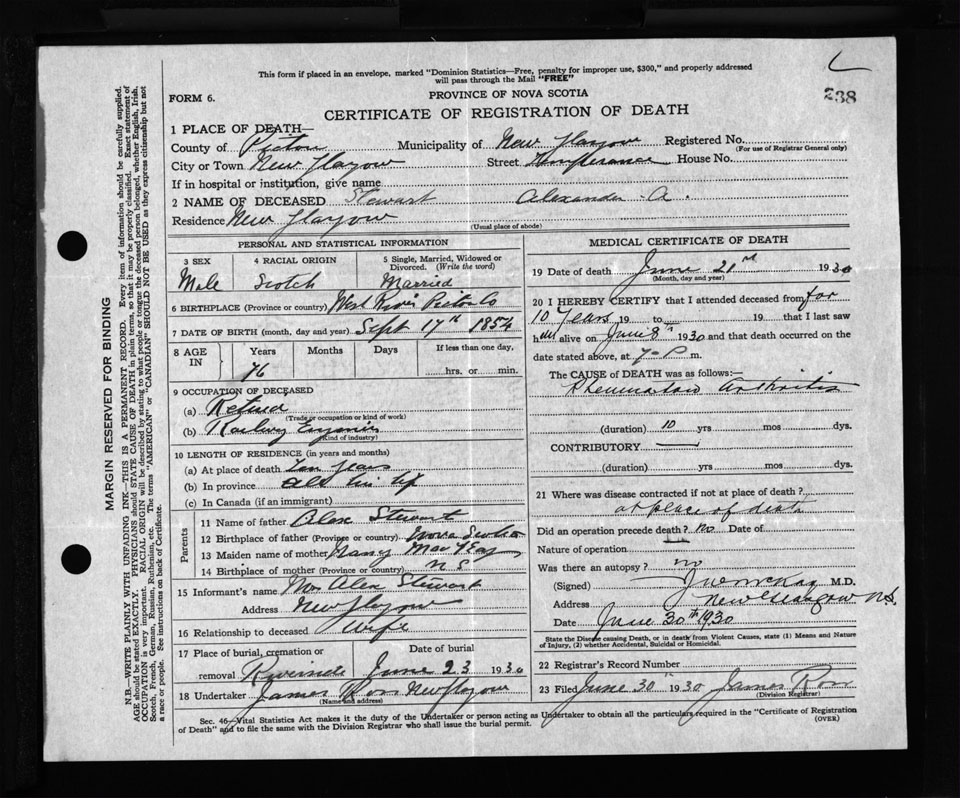 This form if placed in an envelope, marked "Dominion Statistics—Free, penalty for improper use, $300," and properly addressed
will pass through the Mail "FREE"
238
FORM 6.
PROVINCE OF NOVA SCOTIA
CERTIFICATE OF REGISTRATION OF DEATH
1 PLACE OF DEATH—
County of Pictou Municipality of New Glasgow Registered No.
(For use of Registrar General only)
City or Town New Glasgow Street Temperance House No.
If in hospital or institution, give name
2 NAME OF DECEASED Stewart Alexander A.
Residence New Glasgow
(Usual place of abode)
PERSONAL AND STATISTICAL INFORMATION
3 SEX 4 RACIAL ORIGIN 5 Single, Married, Widowed or
Divorced. (Write the word)
Male Scotch Married
6 BIRTHPLACE (Province or country) West River Pictou Co
7 DATE OF BIRTH (month, day and year) Sept 17th 1854
8 AGE IN Years Months Days If less than one day,
76 hrs. or min.
9 OCCUPATION OF DECEASED
(a) Retired
(Trade or occupation or kind of work)
(b) Railway Engineer
(Kind of industry)
10 LENGTH OF RESIDENCE (in years and months)
(a) At place of death Ten years
(b) In province all his life
(c) In Canada (if an immigrant)
Parents
11 Name of father Alex Stewart
12 Birthplace of father (Province or country) Nova Scotia
13 Maiden name of mother Nancy
14 Birthplace of mother (Province or country) N S
15 Informant's name Mrs Alex Stewart
Address New Glasgow
16 Relationship to deceased Wife
17 Place of burial, cremation or Date of burial
removal Riverside June 23 1930
18 Undertaker James Ross New Glasgow
(Name and address)
MEDICAL CERTIFICATE OF DEATH
19 Date of death June 21 1930
(Month, day and year)
20 I HEREBY CERTIFY that I attended deceased from for
10 Years 19 to 19 that I last saw
h alive on June 8th 1930 and that death occurred on the
date stated above, at 7 P m.
The CAUSE of DEATH was as follows:—
Arthritis
(duration) 10 yrs mos dys.
CONTRIBUTORY
(duration) yrs mos dys.
21 Where was disease contracted if not at place of death?
at place of death
Did an operation precede death? no Date of
Nature of operation
Was there an autopsy? no
(Signed) M.D.
Address New Glasgow N.S.
Date June 30th 1930
State the Disease causing Death, or in death from Violent Causes, state (1) Means and Nature
of Injury, (2) whether Accidental, Suicidal or Homicidal.
22 Registrar's Record Number
23 Filed June 30th 1930 James Ross
(Division Registrar)
Sec. 46—Vital Statistics Act makes it the duty of the Undertaker or person acting as Undertaker to obtain all the particulars required in the "Certificate of Registration
of Death" and to file the same with the Division Registrar who shall issue the burial permit.
(OVER)
MARGIN RESERVED FOR BINDING
N.B.—WRITE PLAINLY WITH UNFADING INK—THIS IS A PERMANENT RECORD. Every item of information should be carefully supplied.
AGE should be stated EXACTLY. PHYSICIANS should STATE CAUSE OF DEATH in plain terms, so that it may be properly classified. Exact statement of
OCCUPATION is very important. RACIAL ORIGIN will be described by stating to what people or tongue the deceased person belonged, whether English, Irish,
Scotch, French, German, Russian, Ruthenian, etc. The terms "AMERICAN" or "CANADIAN" SHOULD NOT BE USED as they express citizenship but not
a race or people. See instructions on back of Certificate.